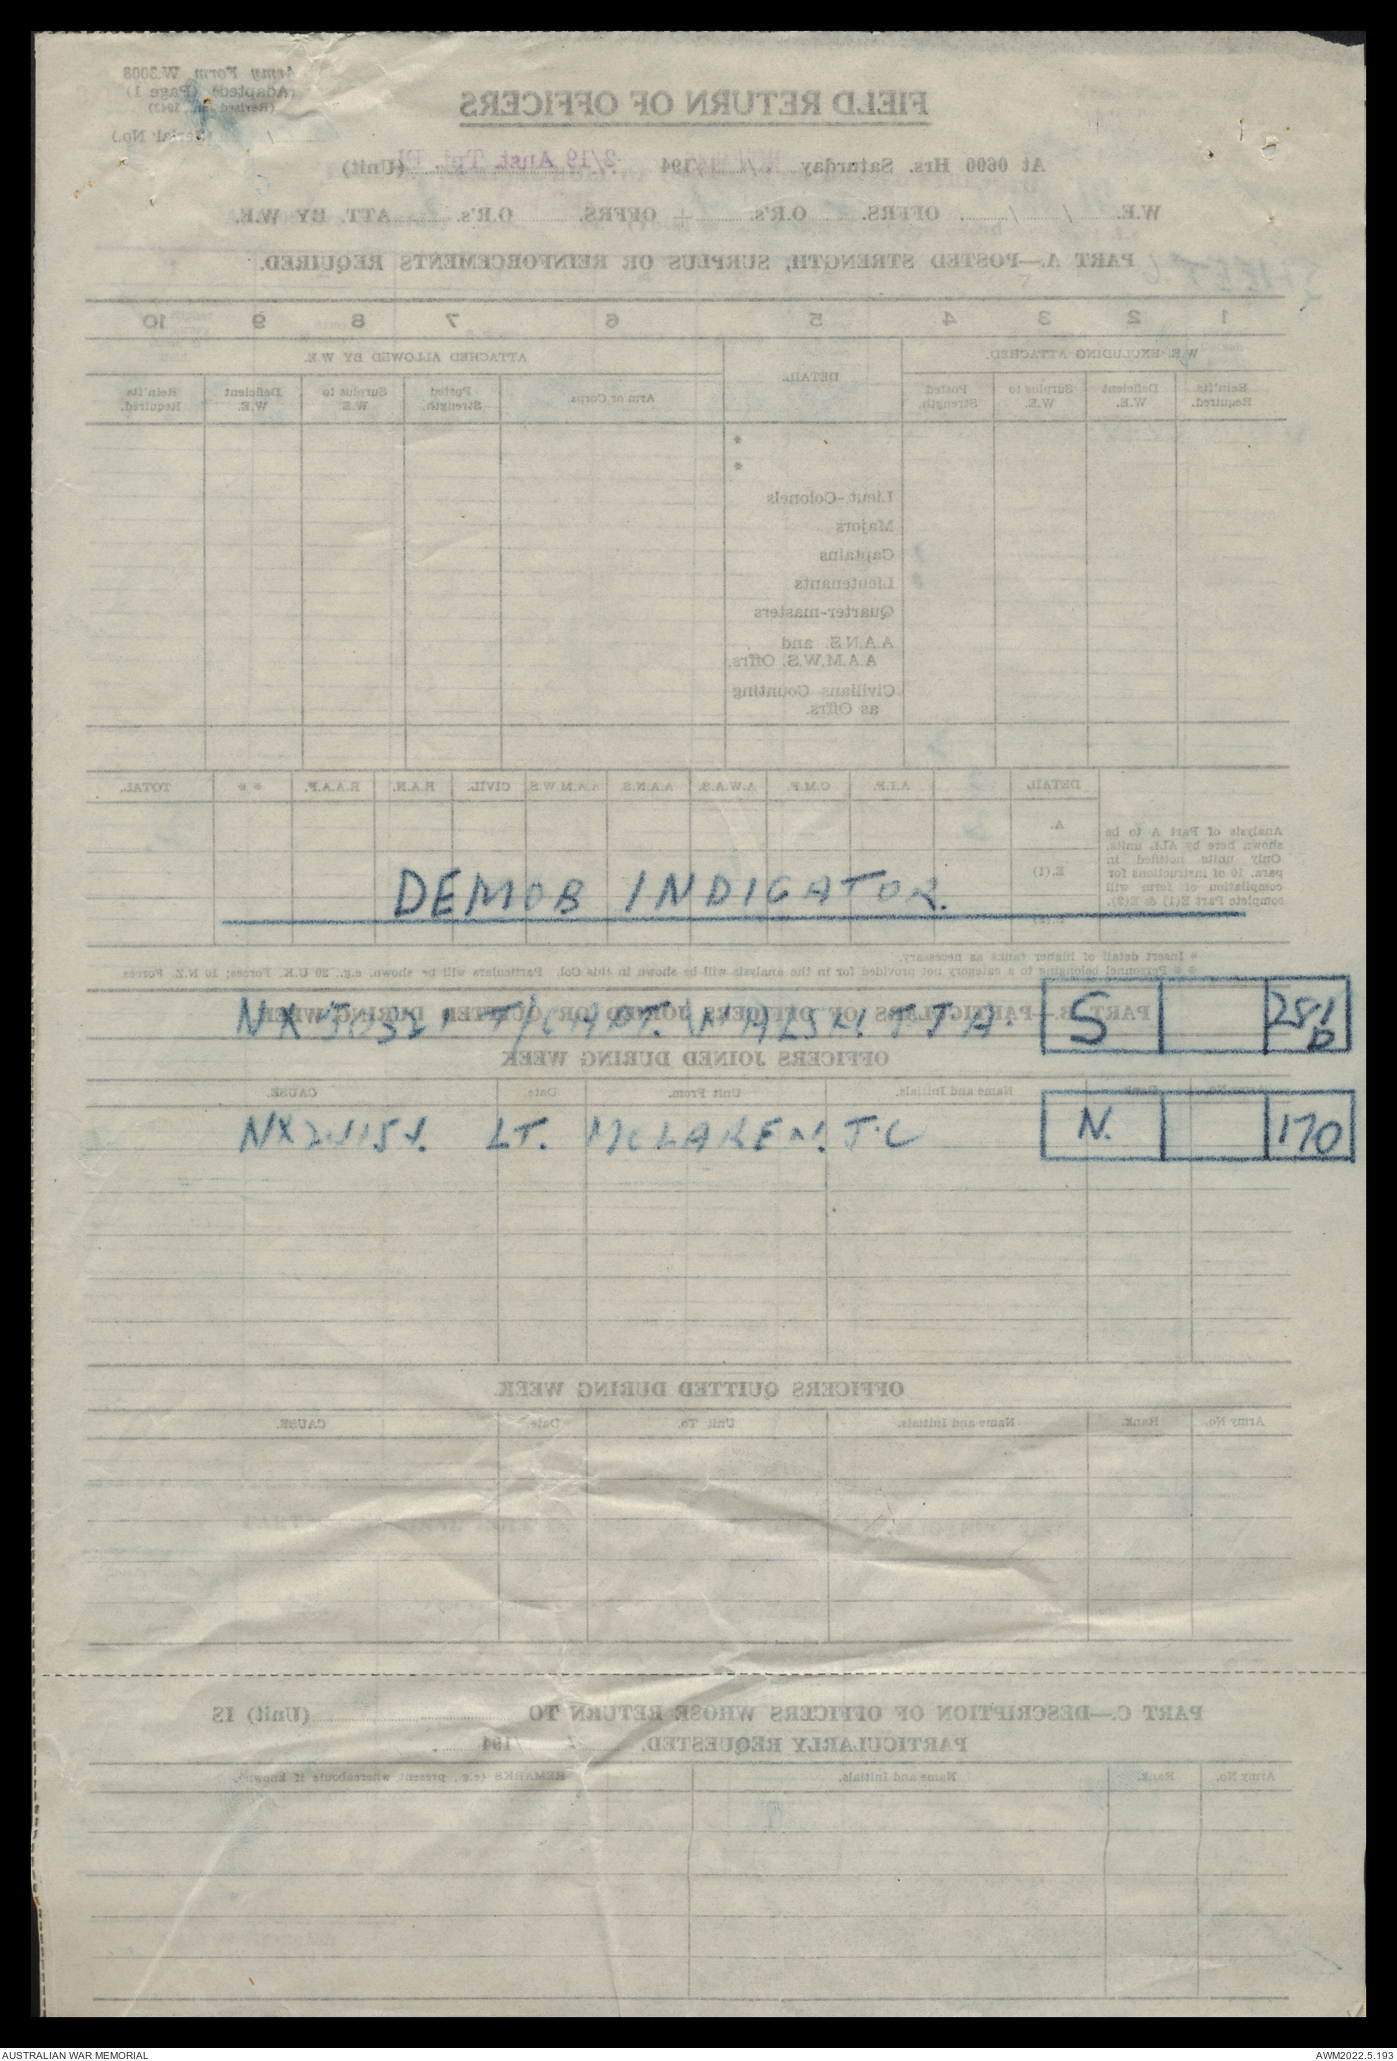 Army Form W.3008
(Adapted) (Page 1)
(Serial No.)
FIELD RETURN OF OFFICERS
At 0600 Hrs. Saturday /194 2/19 Aust. Tpt. Pl. (Unit)
W.E. / / . OFFRS. O.R's. + OFFRS. O.R's. ATT. BY W.E.
PART A.—POSTED STRENGTH, SURPLUS OR REINFORCEMENTS REQUIRED.
1 2 3 4 5 6 7 8 9 10
W.E. EXCLUDING ATTACHED. DETAIL. ATTACHED ALLOWED BY W.E.
Rein'ts Required. Deficient W.E. Surplus to W.E. Posted Strength. Arm or Corps. Posted Strength. Surplus to W.E. Deficient W.E. Rein'ts Required.
*
*
Lieut.-Colonels
Majors
Captains
Lieutenants
Quarter-masters
A.A.N.S. and
A.A.M.W.S. Offrs.
Civilians Counting
as Offrs.
DETAIL A.I.F. C.M.F. A.W.A.S. A.A.N.S. A.A.M.W.S. CIVIL. R.A.N. R.A.A.F. * * TOTAL.
Analysis of Part A to be
shown here by ALL units.
Only units notified in
para. 10 of instructions for
compilation of form will
complete Part E(1) & E(2).
A.
E.(1)
DEMOB INDICATOR.
* Insert detail of higher ranks as necessary.
* * Personnel belonging to a category not provided for in the analysis will be shown in this Col. Particulars will be shown, e.g., 20 U.K. Forces; 10 N.Z. Forces.
PART B.—PARTICULARS OF OFFICERS JOINED OR QUITTED DURING WEEK
T/CAPT. WALSH S 281 D
OFFICERS JOINED DURING WEEK
Army No. Rank. Name and Initials. Unit From. Date CAUSE.
LT. MCLAREN. J.C N. 170
OFFICERS QUITTED DURING WEEK.
Army No. Rank. Name and Initials. Unit To. Date CAUSE.
PART C.—DESCRIPTION OF OFFICERS WHOSE RETURN TO (Unit) IS
PARTICULARLY REQUESTED. / /194 .
Army No. Rank. Name and Initials. REMARKS (e.g., present whereabouts if known).
AUSTRALIAN WAR MEMORIAL AWM2022.5.193